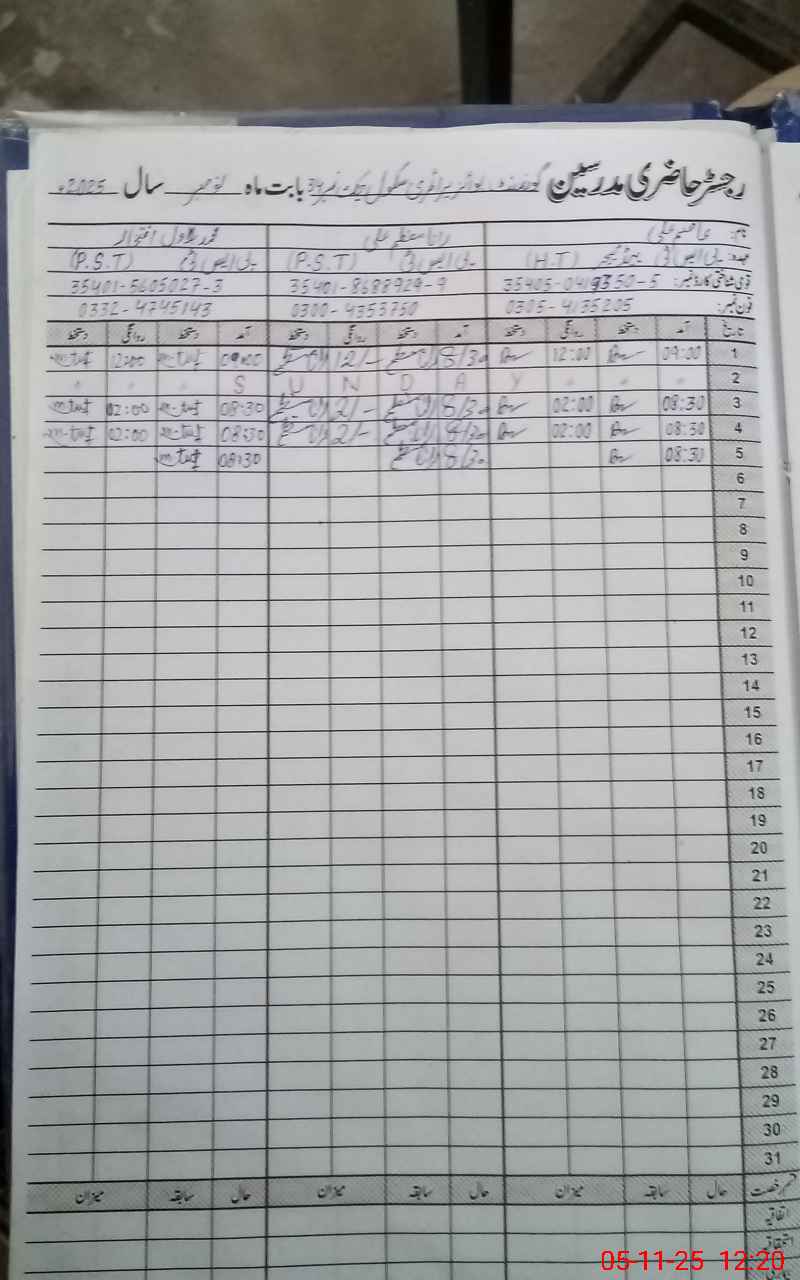 رجسٹر حاضری مدرسین گورنمنٹ بوائز پرائمری سکول چک نمبر 34 بابت ماہ نومبر سال 2025ء
نام: عاصم علی رانا معظم علی محمد بلاول افتخار
عہدہ: پی ایس ٹی ہیڈ ٹیچر (H.T) پی ایس ٹی (P.S.T) پی ایس ٹی (P.S.T)
قومی شناختی کارڈ نمبر: 35405-0419350-5 35401-8688929-9 35401-5605027-3
فون نمبر: 0305-4135205 0300-4353750 0332-4745143
تاریخ آمد دستخط روانگی دستخط آمد دستخط روانگی دستخط آمد دستخط روانگی دستخط
1 09:00 12:00 8/30 12/- 09:00 12:00
2 S U N D A Y
3 08:30 02:00 8/30 2/- 08:30 02:00
4 08:30 02:00 8/30 2/- 08:30 02:00
5 08:30 8/30 08:30
6
7
8
9
10
11
12
13
14
15
16
17
18
19
20
21
22
23
24
25
26
27
28
29
30
31
قسم رخصت حال سابقہ میزان حال سابقہ میزان حال سابقہ میزان
اتفاقیہ
استحقاقیہ
05-11-25 12:20